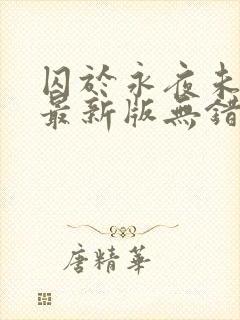 囚於永夜未
最新版無錯
唐精華